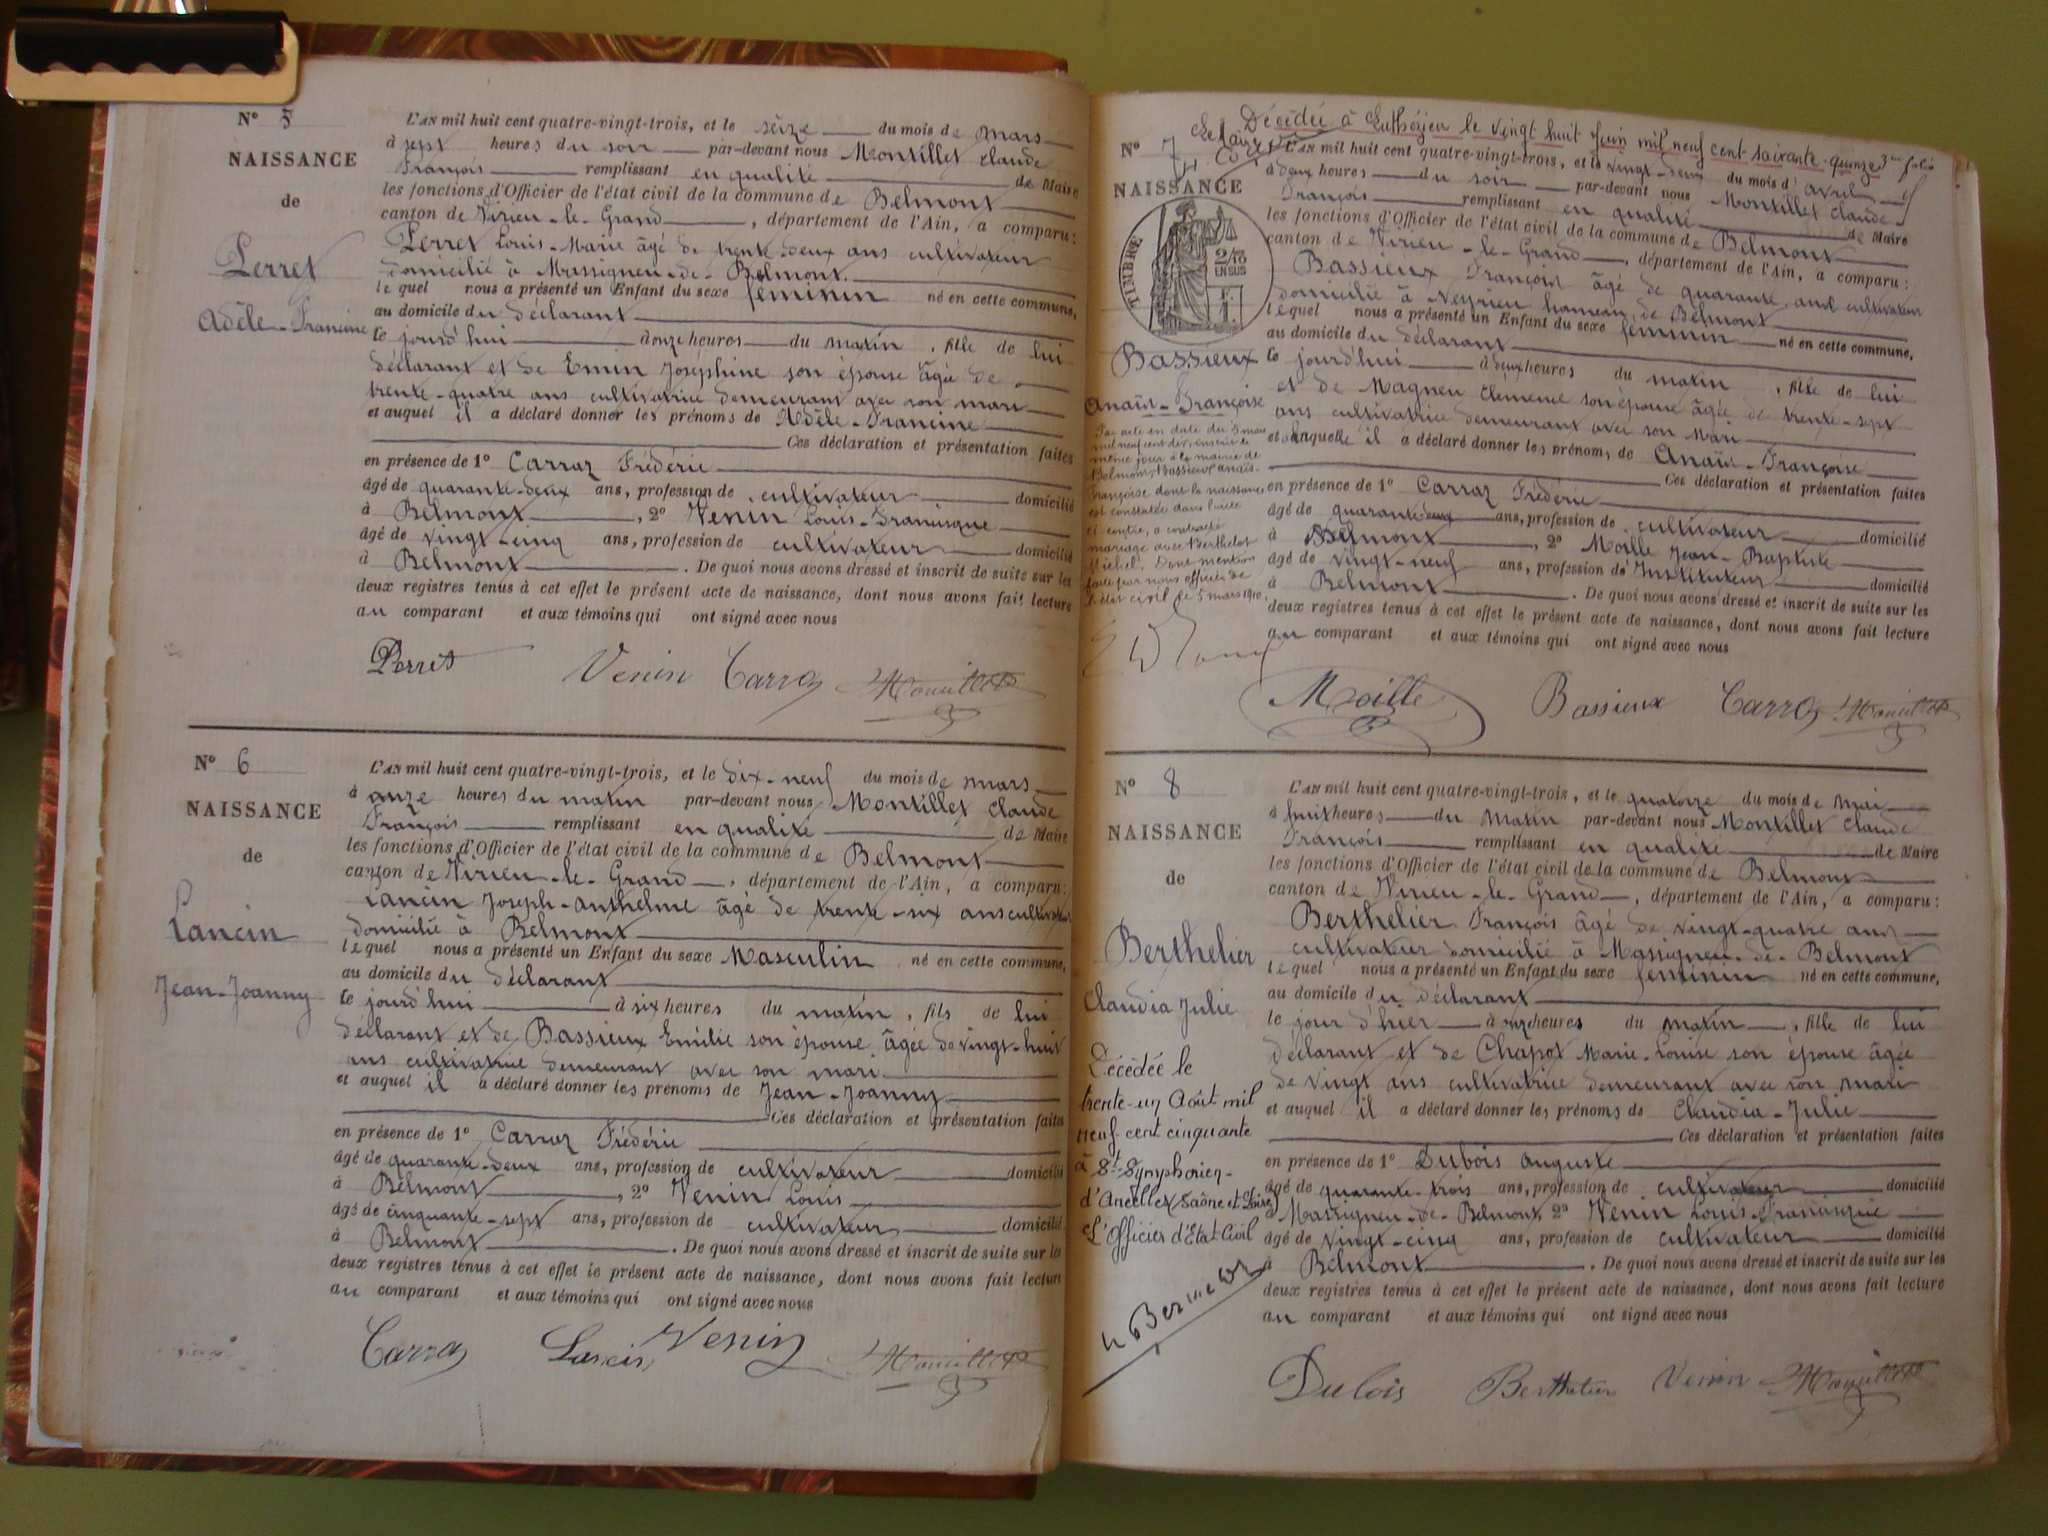 Nº 5
NAISSANCE
de
Perret
Adèle-Francine
L'AN mil huit cent quatre-vingt-trois, et le seize du mois de mars
à sept heures du soir par-devant nous Montillet Claude
François remplissant en qualité de Maire
les fonctions d'Officier de l'état civil de la commune de Belmont
canton de Virieu-le-Grand, département de l'Ain, a comparu:
Perret Louis-Marie âgé de trente-deux ans cultivateur
domicilié à Massignieu-de-Belmont.
lequel nous a présenté un Enfant du sexe féminin né en cette commune,
au domicile du déclarant
ce jourd'hui à onze heures du matin, fille de lui
déclarant et de Emin Joséphine son épouse âgée de
trente-quatre ans cultivatrice demeurant avec son mari
et auquel il a déclaré donner les prénoms de Adèle-Francine
Ces déclaration et présentation faites
en présence de 1º Carraz Frédéric
âgé de quarante-deux ans, profession de cultivateur domicilié
à Belmont, 2º Venin Louis-Franisque
âgé de vingt-cinq ans, profession de cultivateur domicilié
à Belmont. De quoi nous avons dressé et inscrit de suite sur les
deux registres tenus à cet effet le présent acte de naissance, dont nous avons fait lecture
au comparant et aux témoins qui ont signé avec nous
Perret Venin Carraz Montillet
Nº 6
NAISSANCE
de
Lancin
Jean-Joanny
L'AN mil huit cent quatre-vingt-trois, et le dix-neuf du mois de mars
à onze heures du matin par-devant nous Montillet Claude
François remplissant en qualité de Maire
les fonctions d'Officier de l'état civil de la commune de Belmont
canton de Virieu-le-Grand, département de l'Ain, a comparu:
Lancin Joseph-Anthelme âgé de trente-six ans cultivateur
domicilié à Belmont
lequel nous a présenté un Enfant du sexe Masculin né en cette commune,
au domicile du déclarant
ce jourd'hui à six heures du matin, fils de lui
déclarant et de Bassieux Emilie son épouse âgée de vingt-huit
ans cultivatrice demeurant avec son mari.
et auquel il a déclaré donner les prénoms de Jean-Joanny
Ces déclaration et présentation faites
en présence de 1º Carraz Frédéric
âgé de quarante-deux ans, profession de cultivateur domicilié
à Belmont, 2º Venin Louis
âgé de cinquante-sept ans, profession de cultivateur domicilié
à Belmont. De quoi nous avons dressé et inscrit de suite sur les
deux registres tenus à cet effet le présent acte de naissance, dont nous avons fait lecture
au comparant et aux témoins qui ont signé avec nous
Carraz Lancin Venin Montillet
Décédée à Luthézieu le vingt huit Juin mil neuf cent soixante-quinze
Le Maire
Nº 7
NAISSANCE
TIMBRE
2/10
EN SUS
Bassieux
Anaïs-Françoise
Par acte en date du 5 mars
mil neuf cent dix, inscrit le
même jour à la mairie de
Belmont, Bassieux Anaïs-
Françoise dont la naissance
est constatée dans l'acte
ci-contre, a contracté
mariage avec Berthelot
Michel. Dont mention
faite par nous officier de
l'état civil le 5 mars 1910.
L'AN mil huit cent quatre-vingt-trois, et le vingt-deux du mois d'avril
à deux heures du soir par-devant nous Montillet Claude
François remplissant en qualité de Maire
les fonctions d'Officier de l'état civil de la commune de Belmont
canton de Virieu-le-Grand, département de l'Ain, a comparu:
Bassieux François âgé de quarante ans cultivateur
domicilié à Neyrieu hameau de Belmont
lequel nous a présenté un Enfant du sexe féminin né en cette commune,
au domicile du déclarant
ce jourd'hui à deux heures du matin, fille de lui
et de Magneu Clémence son épouse âgée de trente-sept
ans cultivatrice demeurant avec son Mari
et à laquelle il a déclaré donner les prénoms de Anaïs-Françoise
Ces déclaration et présentation faites
en présence de 1º Carraz Frédéric
âgé de quarante-deux ans, profession de cultivateur domicilié
à Belmont, 2º Moille Jean-Baptiste
âgé de vingt-neuf ans, profession d'Instituteur domicilié
à Belmont. De quoi nous avons dressé et inscrit de suite sur les
deux registres tenus à cet effet le présent acte de naissance, dont nous avons fait lecture
au comparant et aux témoins qui ont signé avec nous
Moille Bassieux Carraz Montillet
Nº 8
NAISSANCE
de
Berthelier
Claudia Julie
Décédée le
trente-un Août mil
neuf cent cinquante
à St-Symphorien-
d'Ancelles (Saône et Loire)
L'Officier d'Etat-Civil
L'AN mil huit cent quatre-vingt-trois, et le quatorze du mois de Mai
à huit heures du Matin par-devant nous Montillet Claude
François remplissant en qualité de Maire
les fonctions d'Officier de l'état civil de la commune de Belmont
canton de Virieu-le-Grand, département de l'Ain, a comparu:
Berthelier François âgé de vingt-quatre ans
cultivateur domicilié à Massignieu-de-Belmont
lequel nous a présenté un Enfant du sexe féminin né en cette commune,
au domicile du déclarant
le jour d'hier à onze heures du matin, fille de lui
déclarant et de Chapot Marie-Louise son épouse âgée
de vingt ans cultivatrice demeurant avec son mari
et auquel il a déclaré donner les prénoms de Claudia-Julie
Ces déclaration et présentation faites
en présence de 1º Dubois Auguste
âgé de quarante-trois ans, profession de cultivateur domicilié
à Massignieu-de-Belmont, 2º Venin Louis-Franisque
âgé de vingt-cinq ans, profession de cultivateur domicilié
à Belmont. De quoi nous avons dressé et inscrit de suite sur les
deux registres tenus à cet effet le présent acte de naissance, dont nous avons fait lecture
au comparant et aux témoins qui ont signé avec nous
Dubois Berthelier Venin Montillet